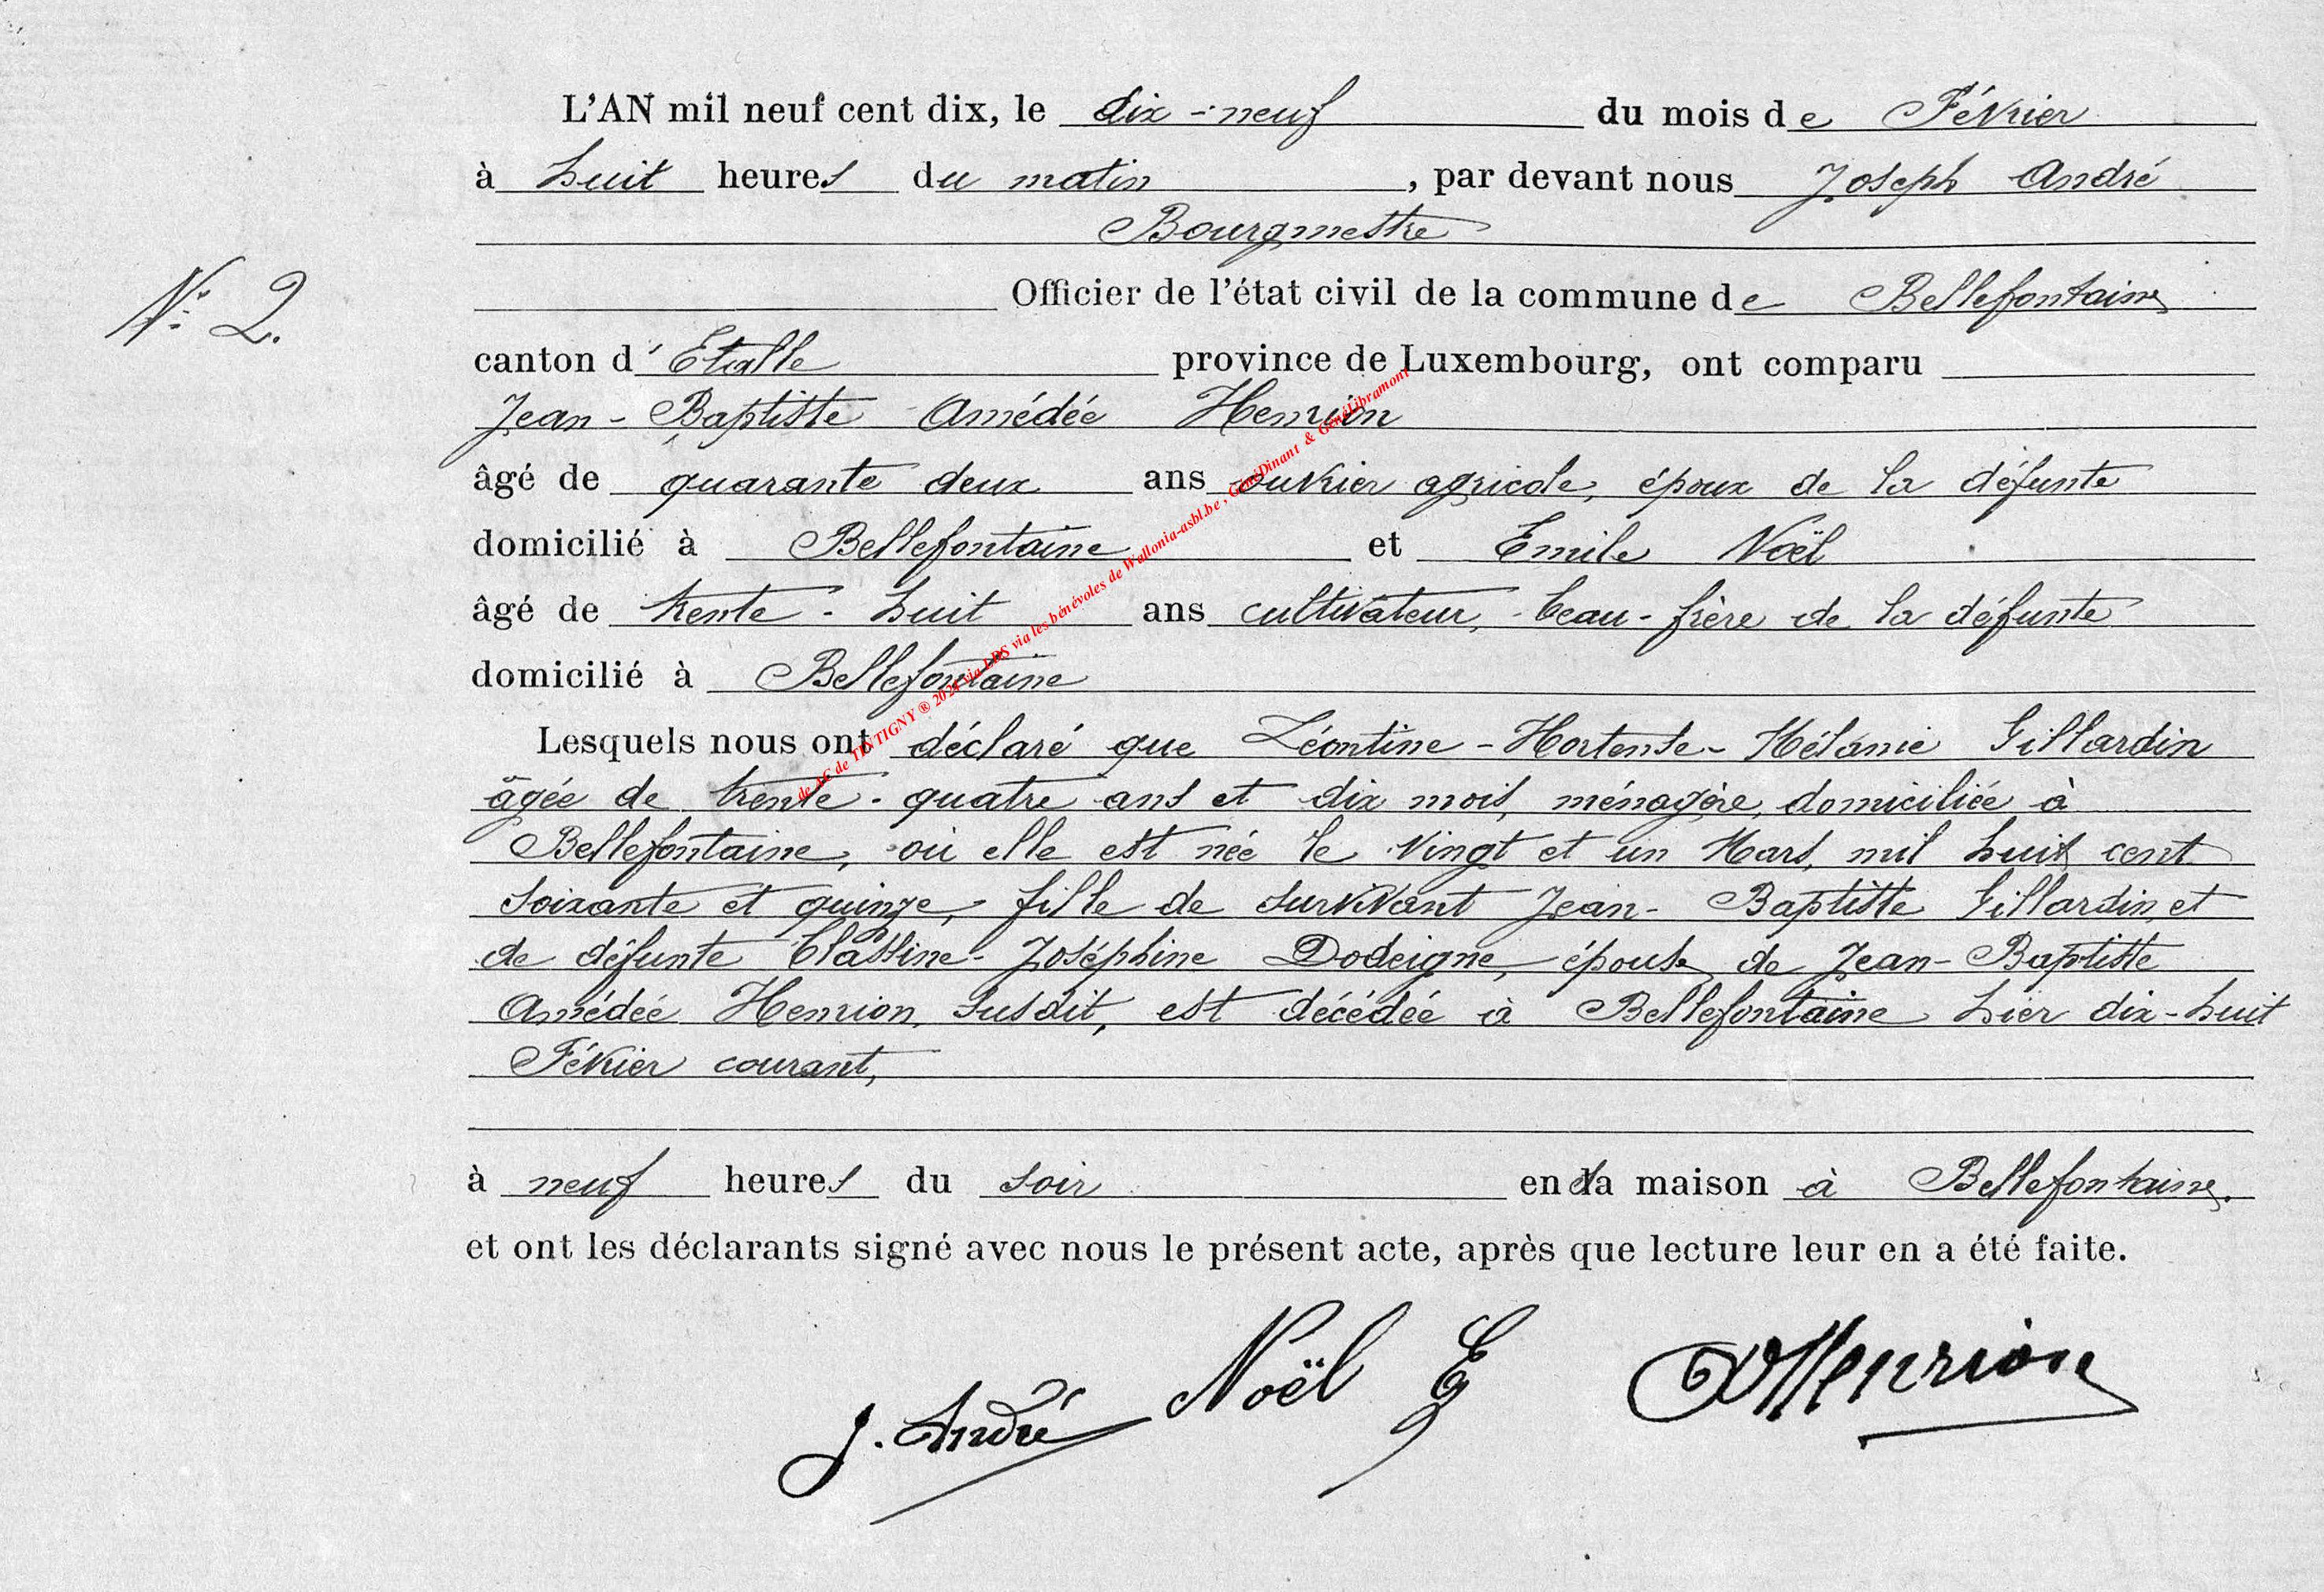 L'AN mil neuf cent dix, le dix-neuf du mois de Février
à huit heures du matin, par devant nous Joseph André
Bourgmestre
N° 2.
Officier de l'état civil de la commune de Bellefontaine
canton d'Etalle province de Luxembourg, ont comparu
Jean-Baptiste Amédée Henrion
âgé de quarante deux ans ouvrier agricole, époux de la défunte
domicilié à Bellefontaine et Emile Noël
âgé de trente-huit ans cultivateur, beau-frère de la défunte
domicilié à Bellefontaine
Lesquels nous ont déclaré que Léontine-Hortense-Mélanie Gillardin
âgée de trente-quatre ans et dix mois, ménagère, domiciliée à
Bellefontaine, où elle est née le vingt et un Mars, mil huit cent
soixante et quinze, fille de survivant Jean-Baptiste Gillardin et
de défunte Joséphine Dodeigne, épouse de Jean-Baptiste
Amédée Henrion susdit, est décédée à Bellefontaine hier dix-huit
Février courant,
à neuf heures du soir en sa maison à Bellefontaine.
et ont les déclarants signé avec nous le présent acte, après que lecture leur en a été faite.
J. André Noël E Henrion
de AC de TINTIGNY ® 2024 via LDS via les bénévoles de Wallonia-asbl.be, GénéDinant & GénéLibramont